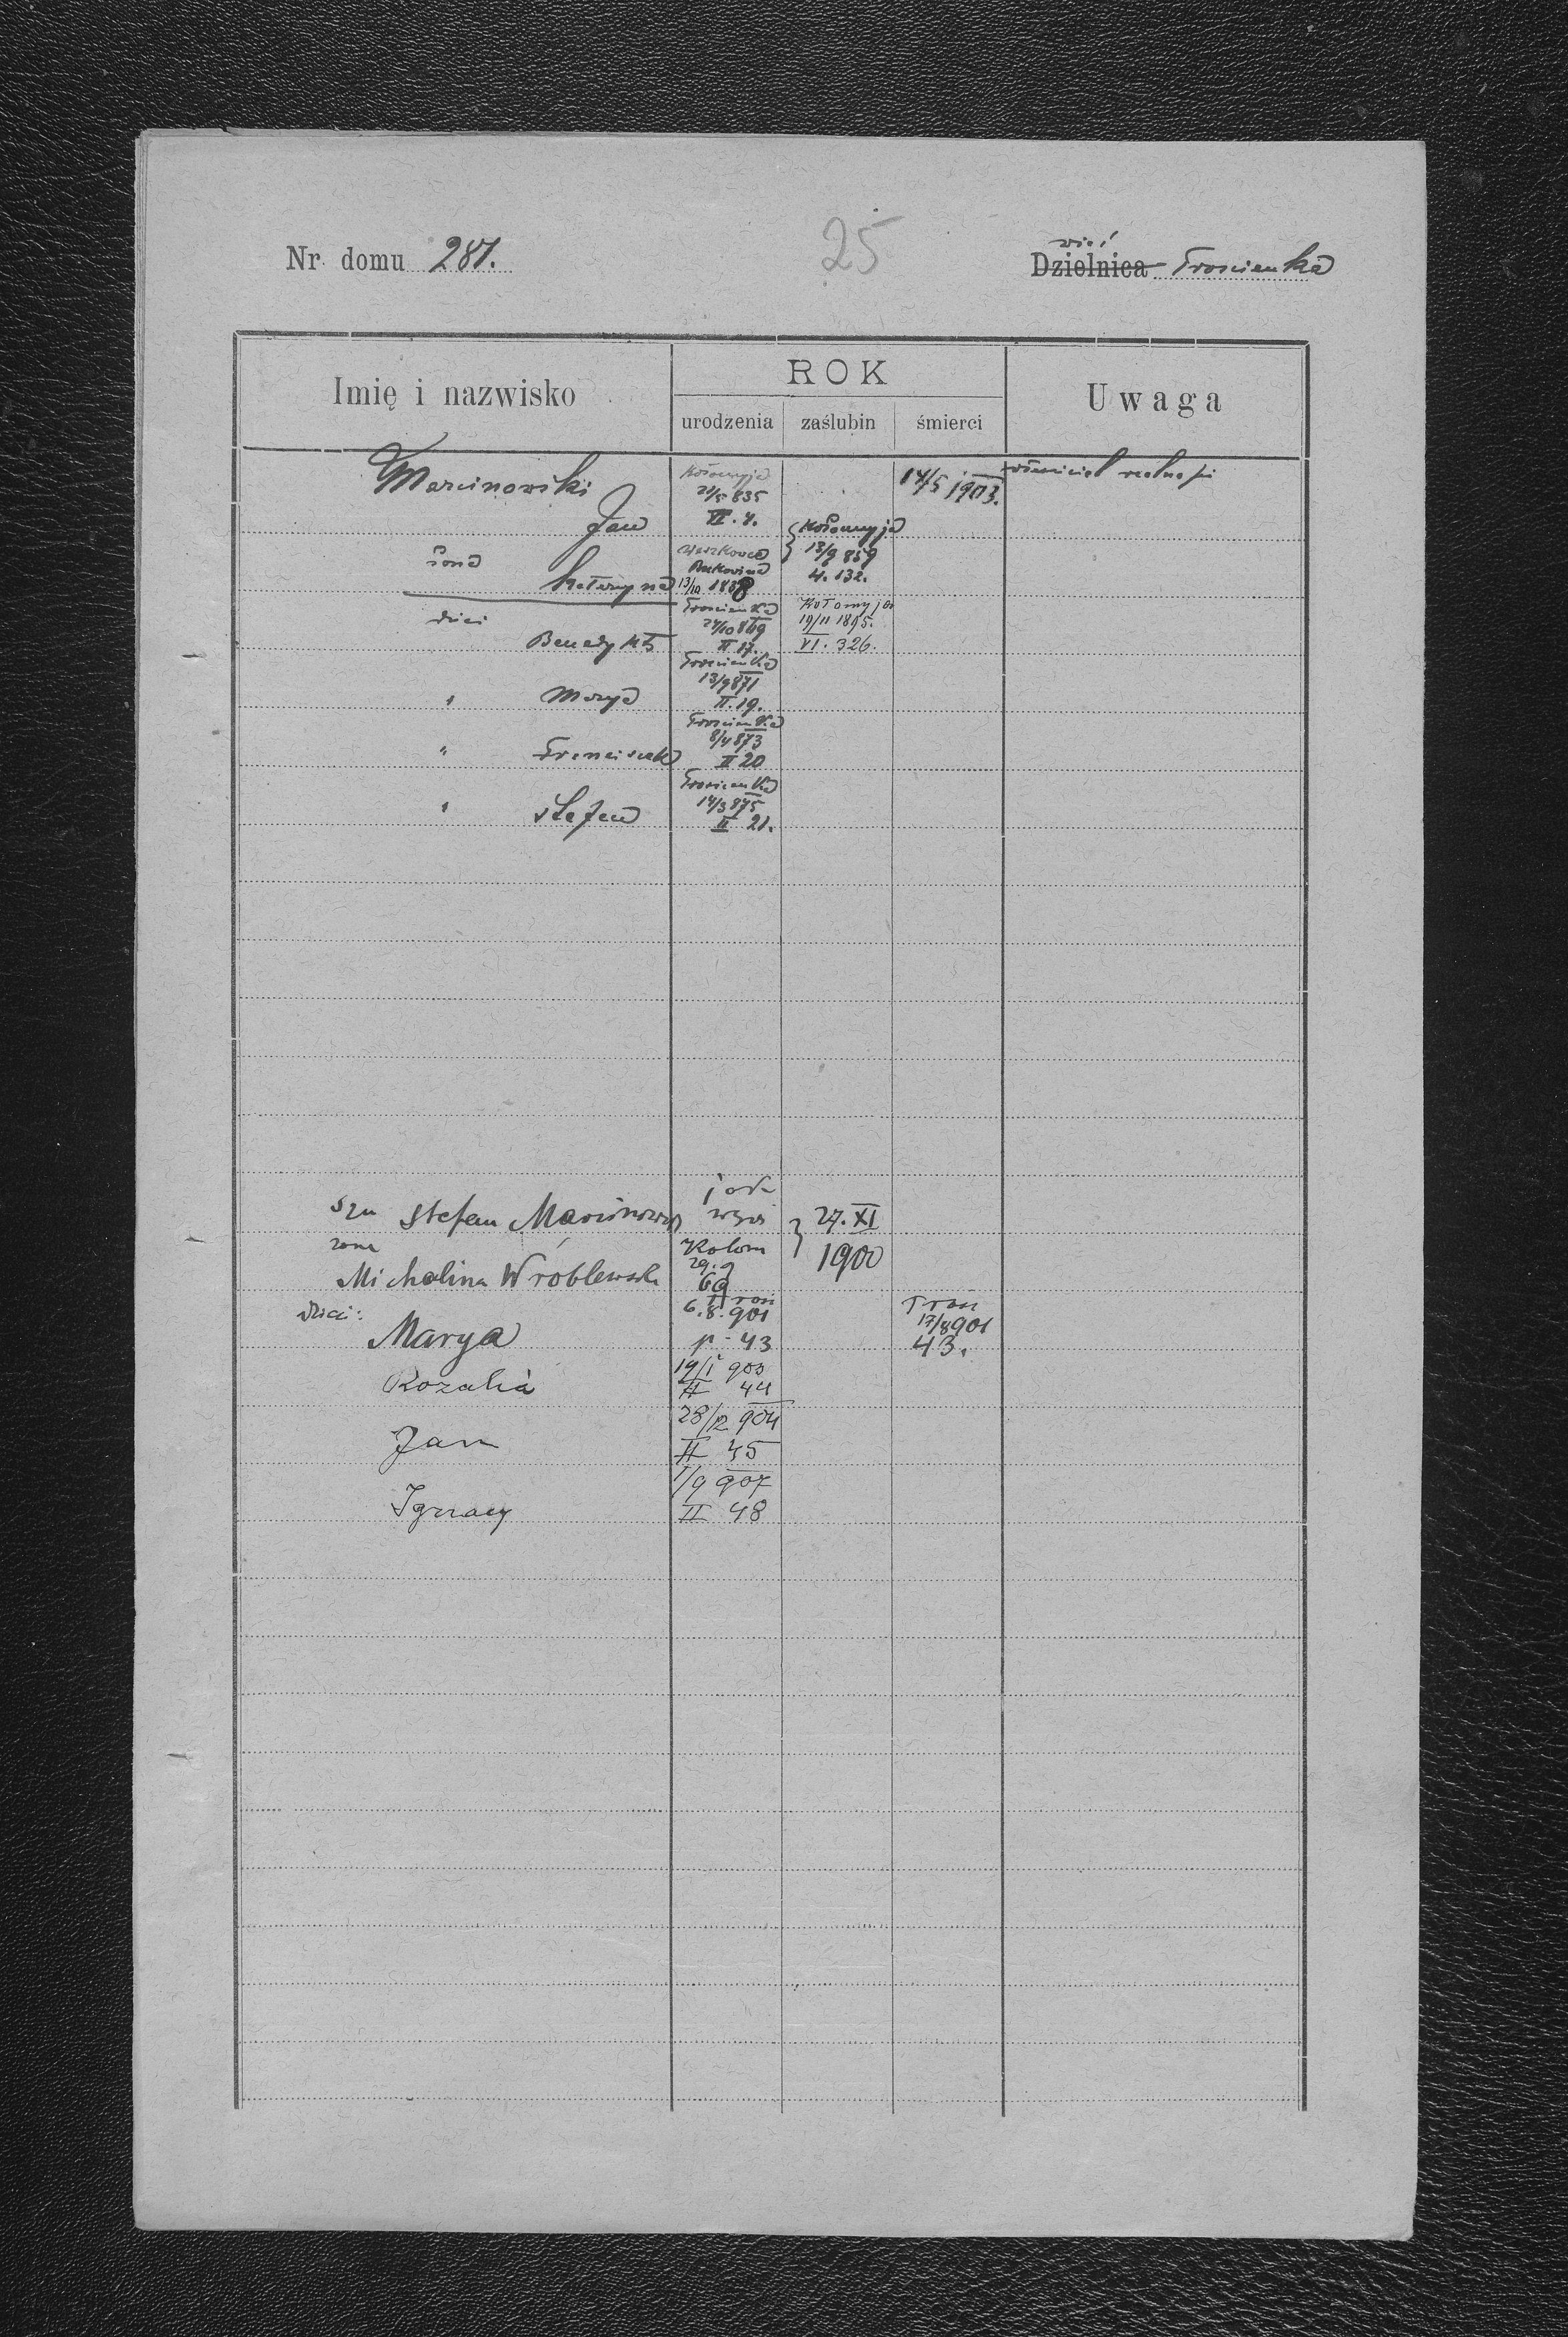 Nr. domu 281.
25
wieś
Dzielnica Trościanka
Imię i nazwisko
ROK
urodzenia zaślubin śmierci
Uwaga
Marcinowski
Jan
Kołomyja
21/5 835
VI. 4.
14/5 1903.
właściciel realności
żona
Kołomyja
13/9 859
4. 132.
Katarzyna
Bukovina
13/10 1838
dzieci
Benedykt
Trościanka
24/10 869
II 17.
Kołomyja
19/11 1895.
VI. 326.
" Marya
Trościanka
13/9 871
II. 19.
" Franciszek
Trościanka
8/4 873
II 20
" Stefan
Trościanka
14/3 875
II 21.
syn Stefan Marcinowski
jak
wyż
27. XI
1900
żona
Michalina Wróblewska
Kołom
29.
dzieci:
Marya
Troś
6.8.901
p. 43
Troś
17/8 901
43.
Rozalia
19/I 903
II 44
Jan
28/12 904
II 45
Ignacy
1/9 907
II 48